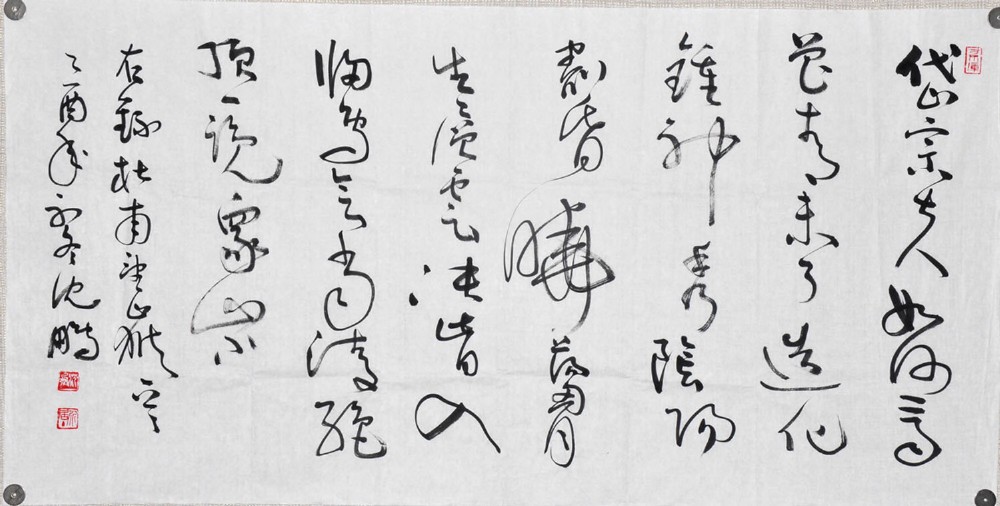 岱宗夫如何齊
魯青未了造化
鍾神秀陰陽
割昏曉蕩胸
生層雲決眥入
歸鳥會當凌絕
頂一覽眾山小
右錄杜甫望嶽一首
乙酉年初冬沈鵬